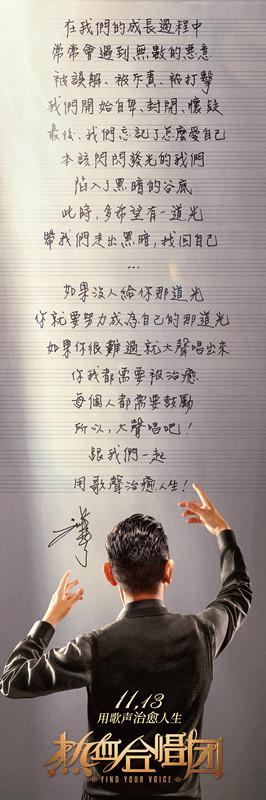 在我們的成長過程中
常常會遇到無數的惡意
被誤解、被斥責、被打擊
我們開始自卑、封閉、懷疑
最後、我們忘記了怎麼愛自己
本該閃閃發光的我們
陷入了黑暗的谷底
此時，多希望有一道光
帶我們走出黑暗，找回自己
...
如果沒人給你那道光
你就要努力成為自己的那道光
如果你很難過就大聲唱出來
你我都需要被治癒
每個人都需要鼓勵
所以，大聲唱吧！
跟我們一起
用歌聲治癒人生！
11.13
用歌声治愈人生
热血合唱团
FIND YOUR VOICE